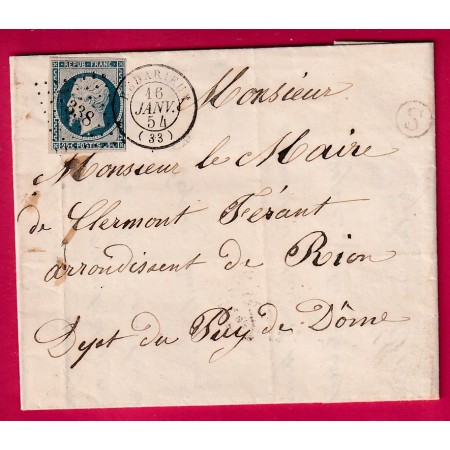 REPUB. FRANC.
338
BEDARIEUX
16
JANV.
54
(33)
S
Monsieur
Monsieur le Maire
de Clermont Férant
arrondissent de Rion
Dept du Puy de Dôme